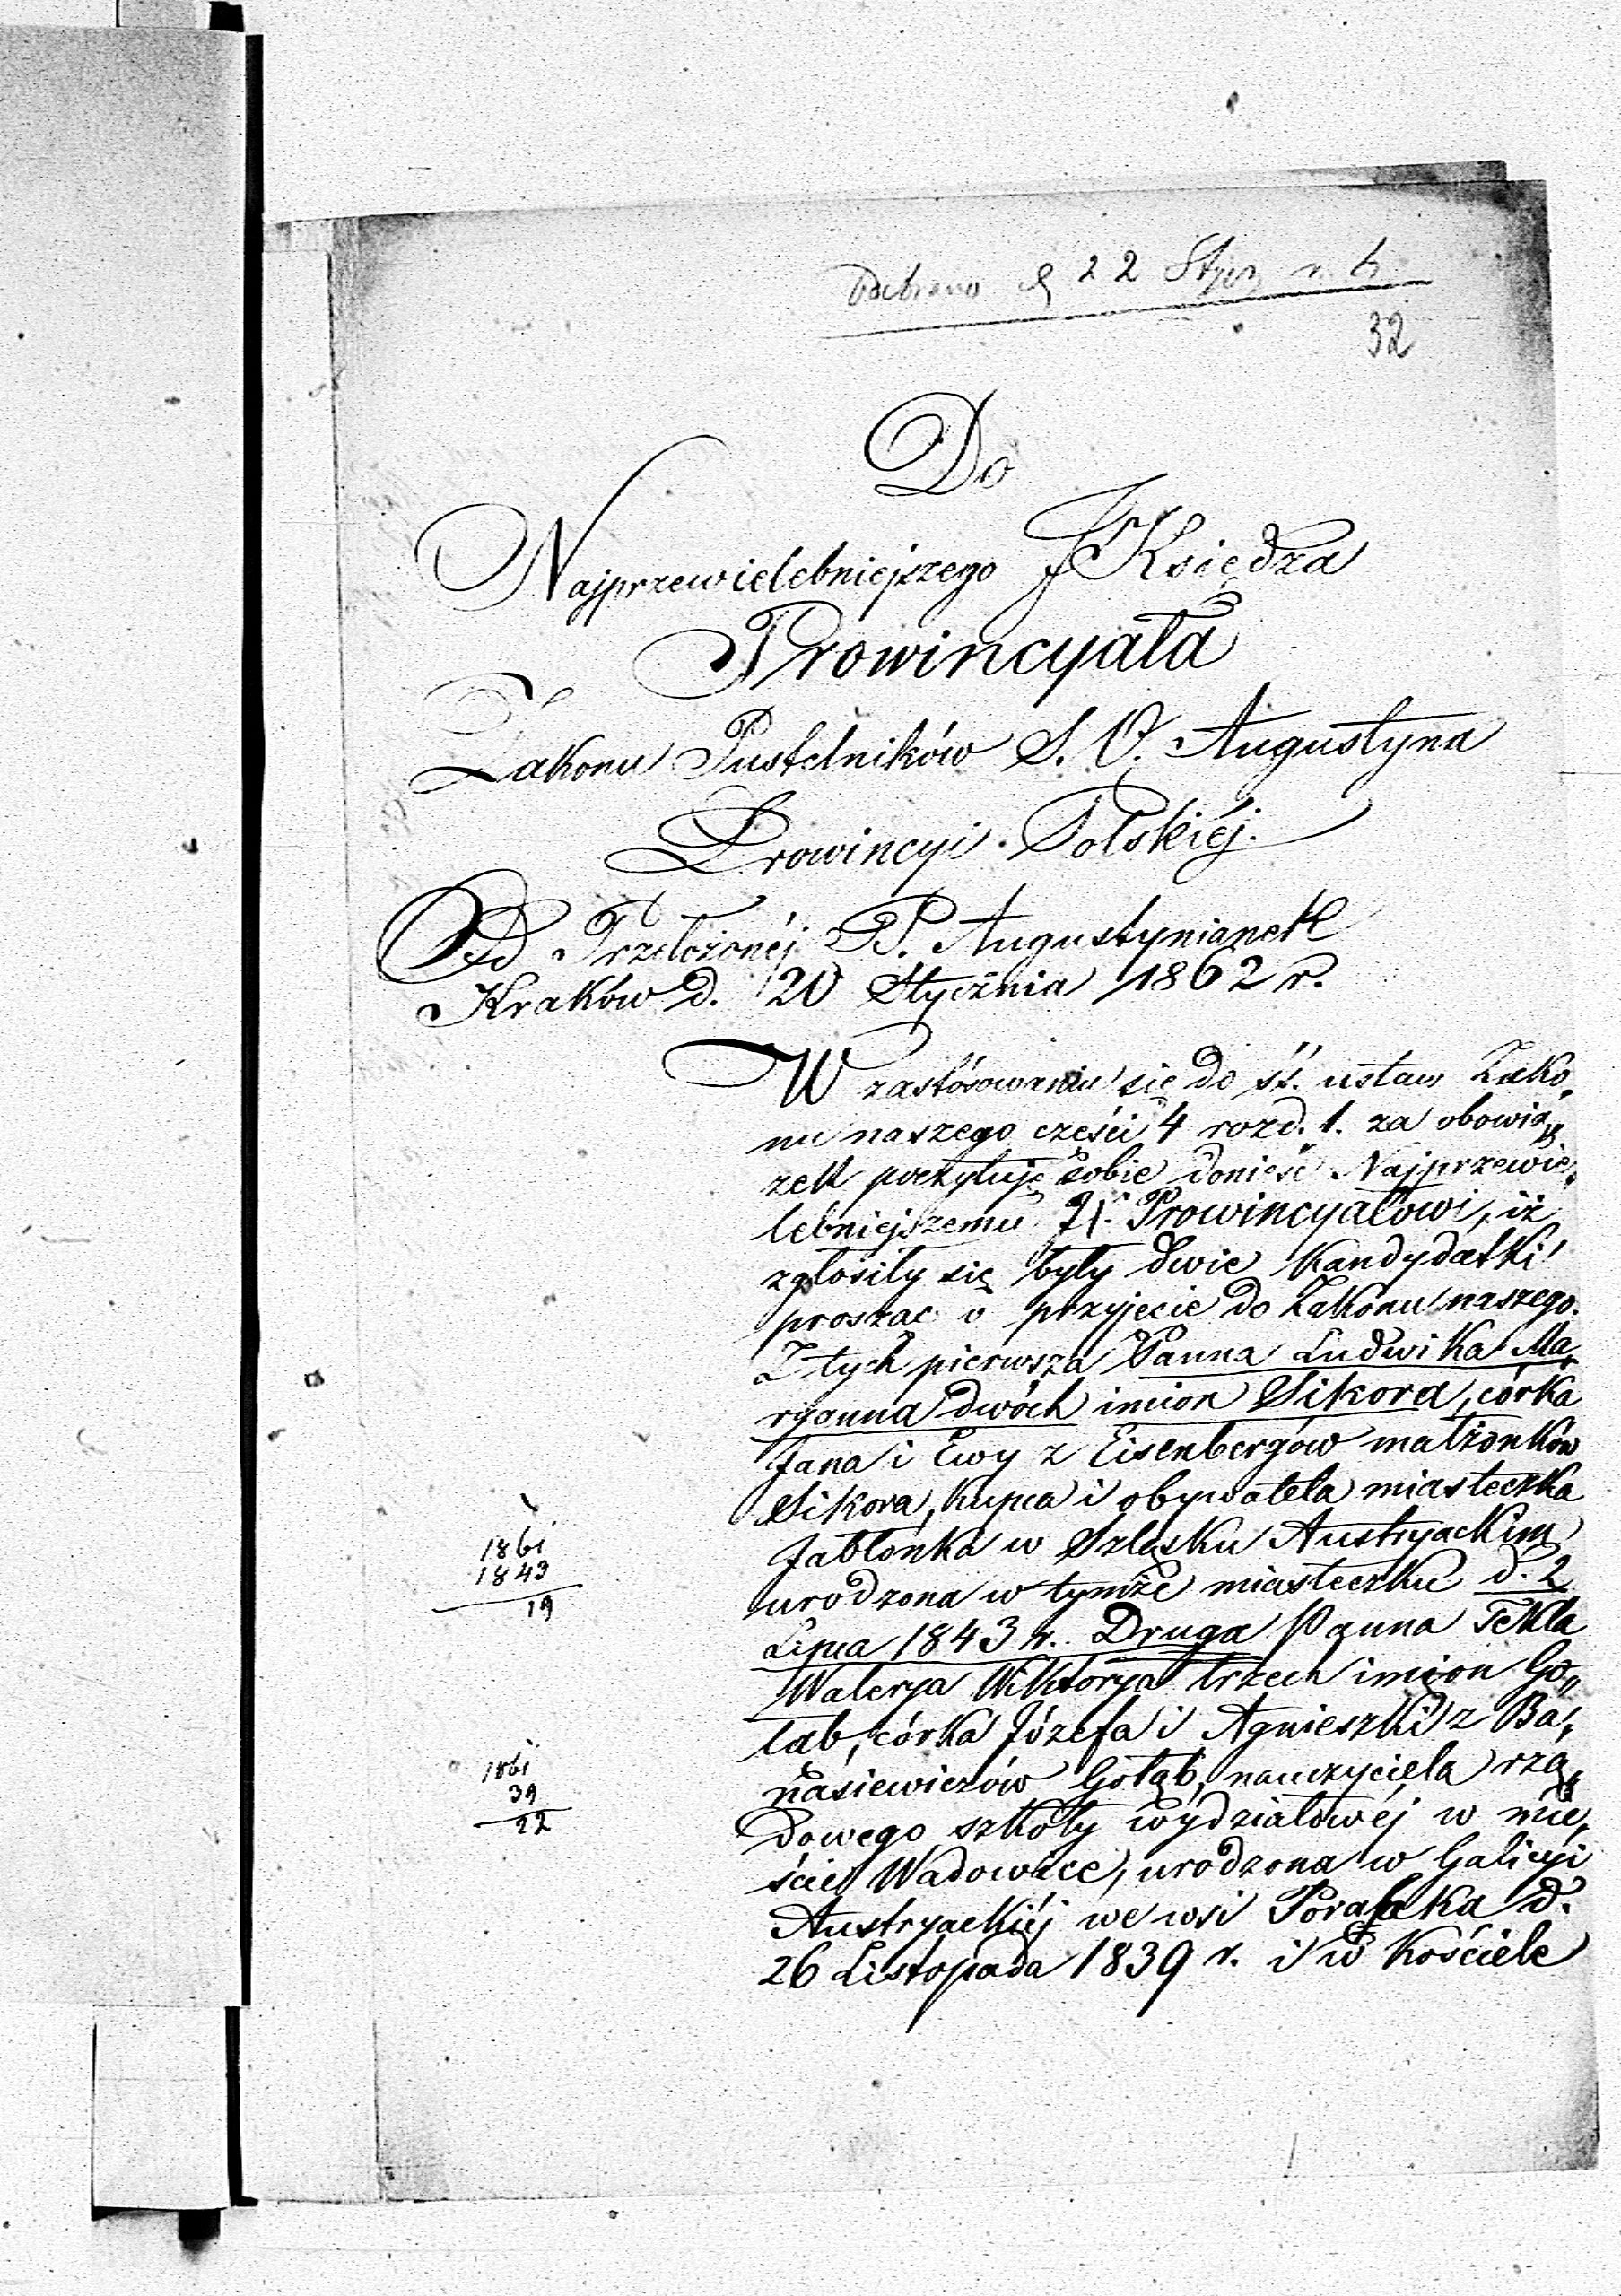 Odebrano d 22 Stycz r. b.
32
Do
Najprzewielebniejszego JKsiędza
Prowincyała
Zakonu Pustelników S. O. Augustyna
Prowincyi Polskiéj.
Od Przełożonéj PP. Augustynianek
Kraków d. 20 Stycznia 1862 r.
W zastósowaniu się do śś. ustaw Zako„
nu naszego części 4 rozd. 1. za obowią„
zek poczytuję sobie donieść Najprzewie„
lebniejszemu JX. Prowincyałowi, iż
zgłosiły się były dwie Kandydatki
prosząc o przyjęcie do Zakonu naszego.
Z tych pierwsza Panna Ludwika Ma„
ryanna dwóch imion Sikora, córka
Jana i Ewy z Eisenbergów małżonków
Sikora, kupca i obywatela miasteczka
Jabłonka w Szląsku Austryackim
urodzona w tymże miasteczku d. 2
Lipca 1843 r. Druga Panna Tekla
Walerya Wiktorya trzech imion Go„
łąb, córka Józefa i Agnieszki z Ba„
nasiewiczów Gołąb, nauczyciela rzą„
dowego szkoły wydziałowéj w mie„
ście Wadowice, urodzona w Galicyi
Austryackiéj we wsi Porąbka d.
26 Listopada 1839 r. i w Kościele
1861
1843
19
1861
39
22